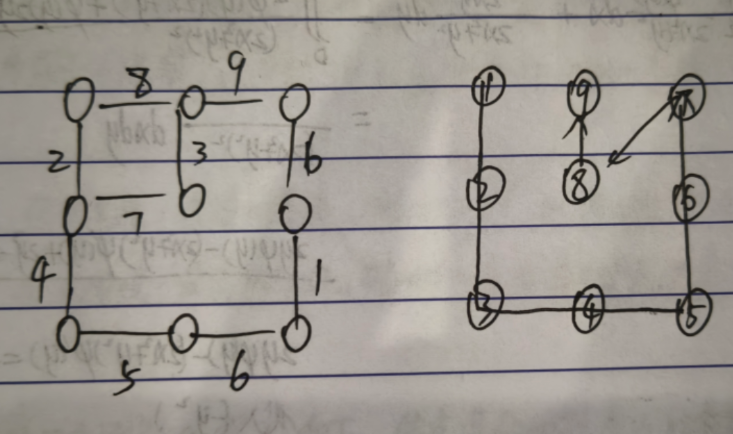 8 9
2 3 6
7
4 1
5 6
1 9
2 8 6
3 4 5